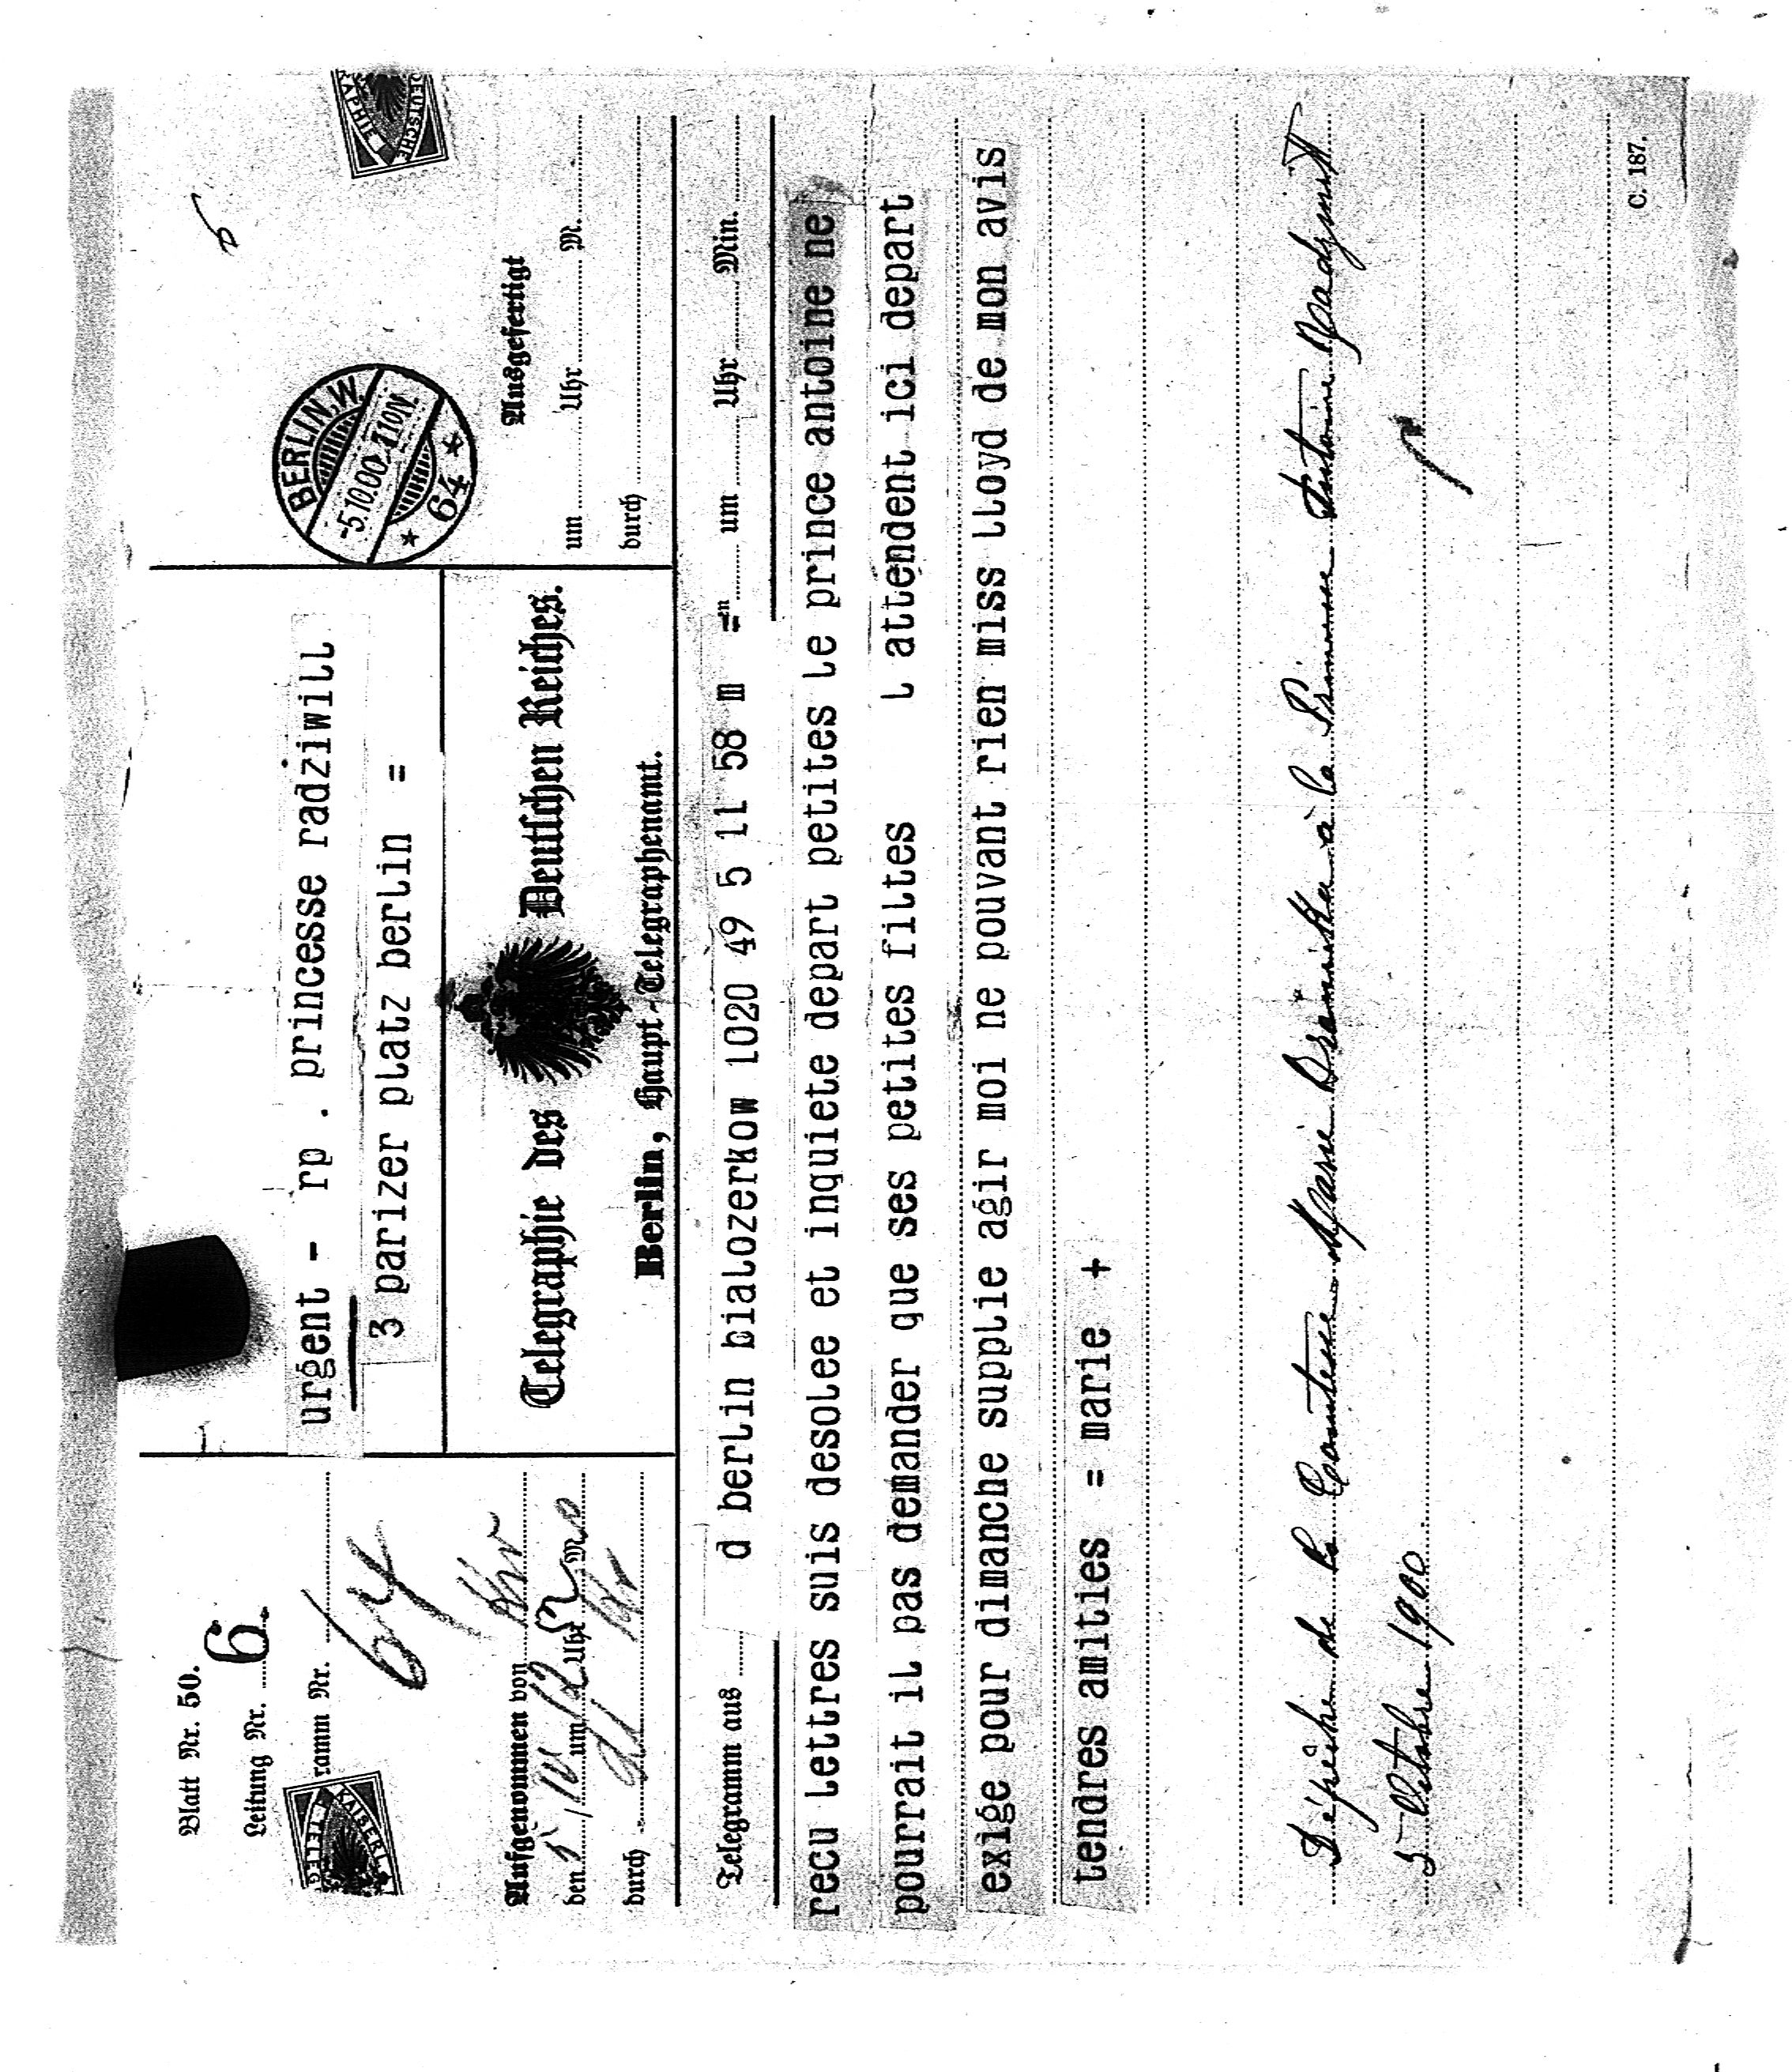 Blatt Nr. 50.
Leitung Nr. 6
ramm Nr.
KAISERL.
TELEG
urgent - rp . princesse radziwill
3 parizer platz berlin =
BERLIN.W.
-5.10.00. 1 10N.
* 64 *
DEUTSCHE
RAPHIE
Aufgenommen von
den 5/10 um 12 Uhr M.
durch
Telegraphie des Deutschen Reiches.
Berlin, Haupt-Telegraphenamt.
Ausgefertigt
um Uhr M.
durch
Telegramm aus d berlin bialozerkow 1020 49 5 11 58 m = en um Uhr Min.
recu lettres suis desolee et inquiete depart petites le prince antoine ne
pourrait il pas demander que ses petites filles l attendent ici depart
exige pour dimanche supplie agir moi ne pouvant rien miss lloyd de mon avis
tendres amities = marie +
Dépêche de la Comtesse Marie Branicka à la Princesse Antoine Radziwill
5 Octobre 1900
C. 187.